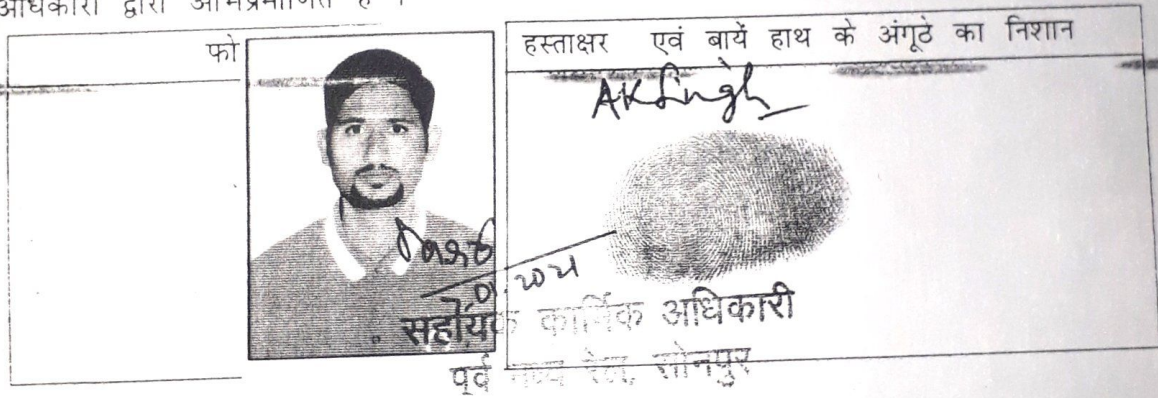 अधिकारी द्वारा अभिप्रमाणित है ।
फो
हस्ताक्षर एवं बायें हाथ के अंगूठे का निशान
AKSingh
01.2021
सहायक कार्मिक अधिकारी
पूर्व मध्य रेल, सोनपुर